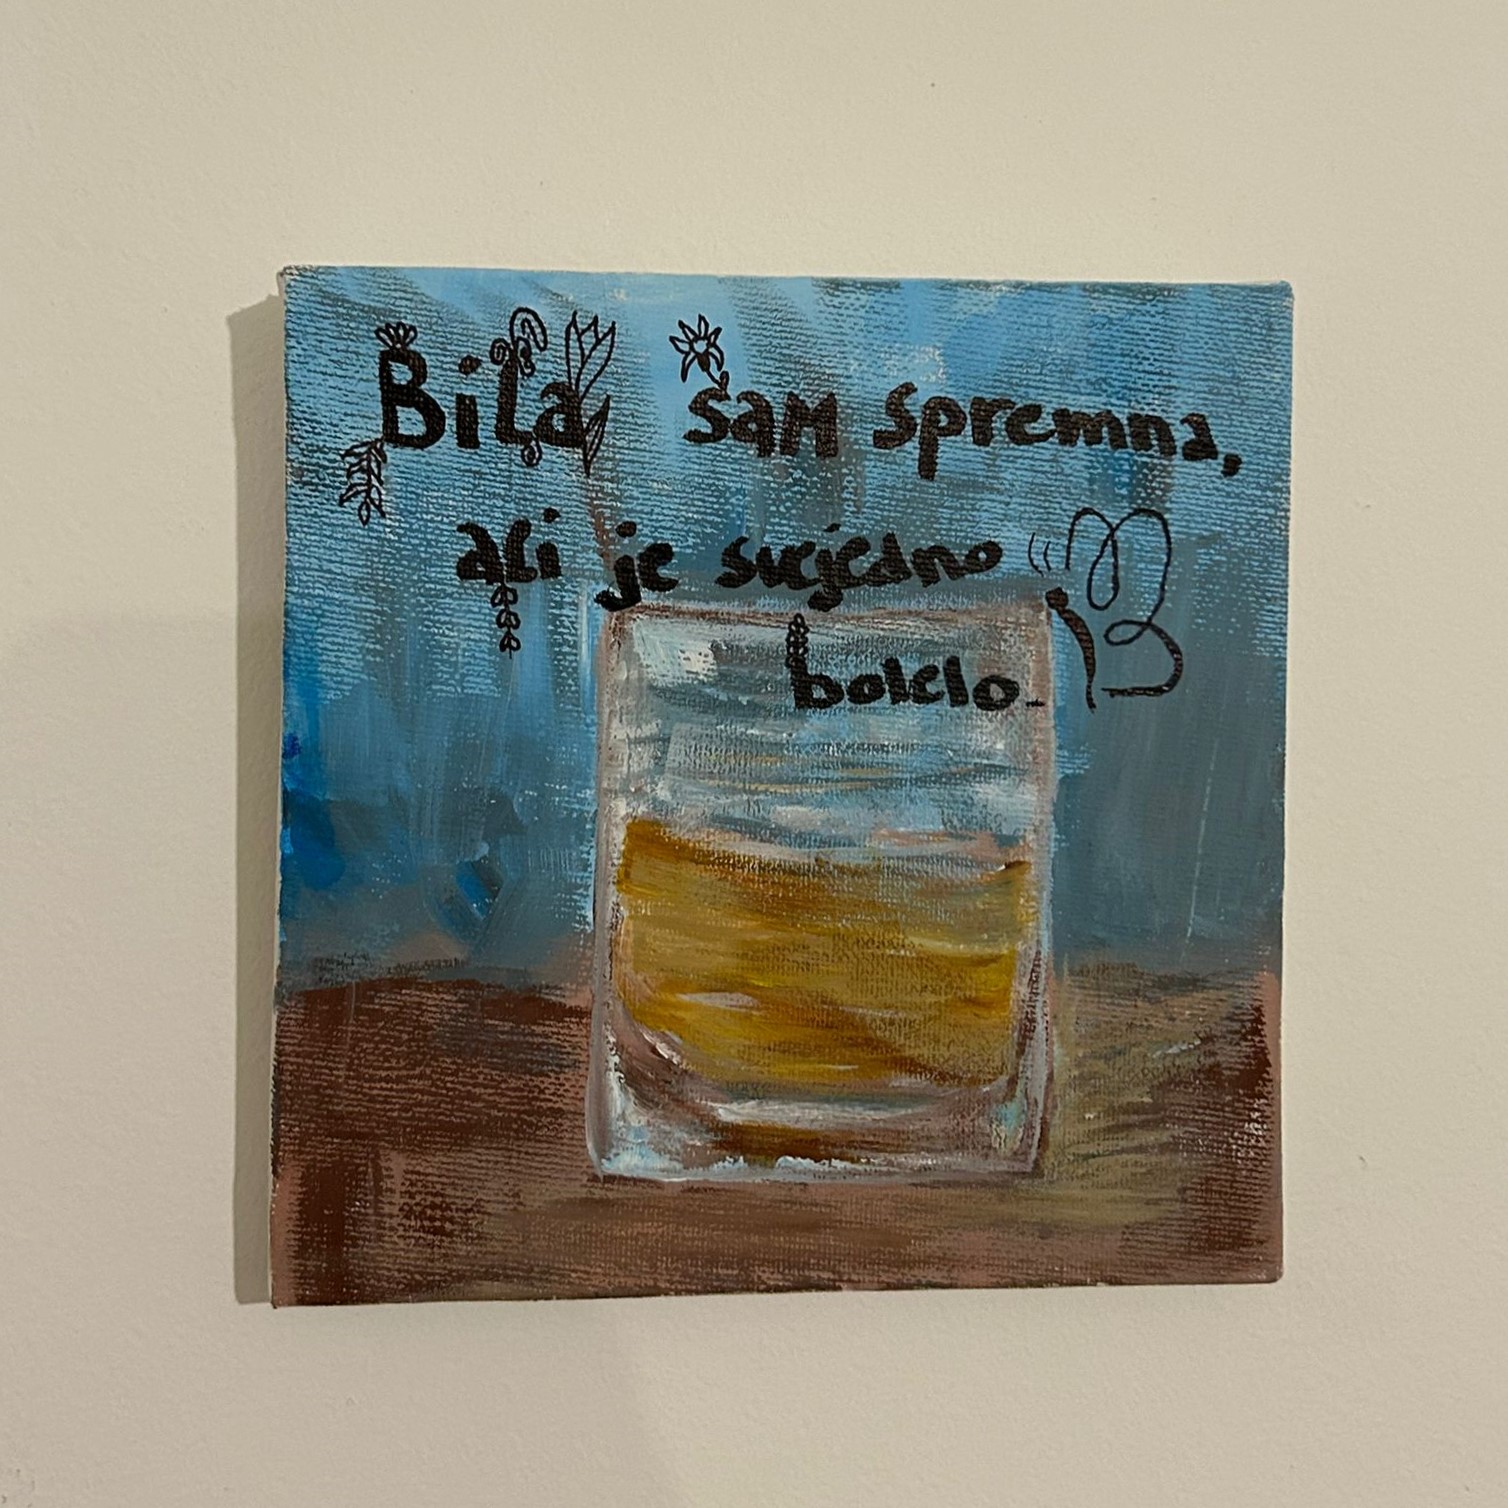 Bila sam spremna,
ali je svejedno
bolelo.